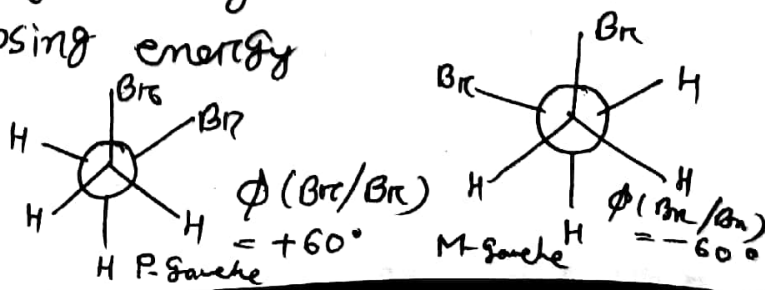 osing energy
Br
Br
H
H
H
H
P-Gauche
ϕ(Br/Br)
= +60°
Br
Br
H
H
H
H
M-Gauche
ϕ(Br/Br)
= -60°